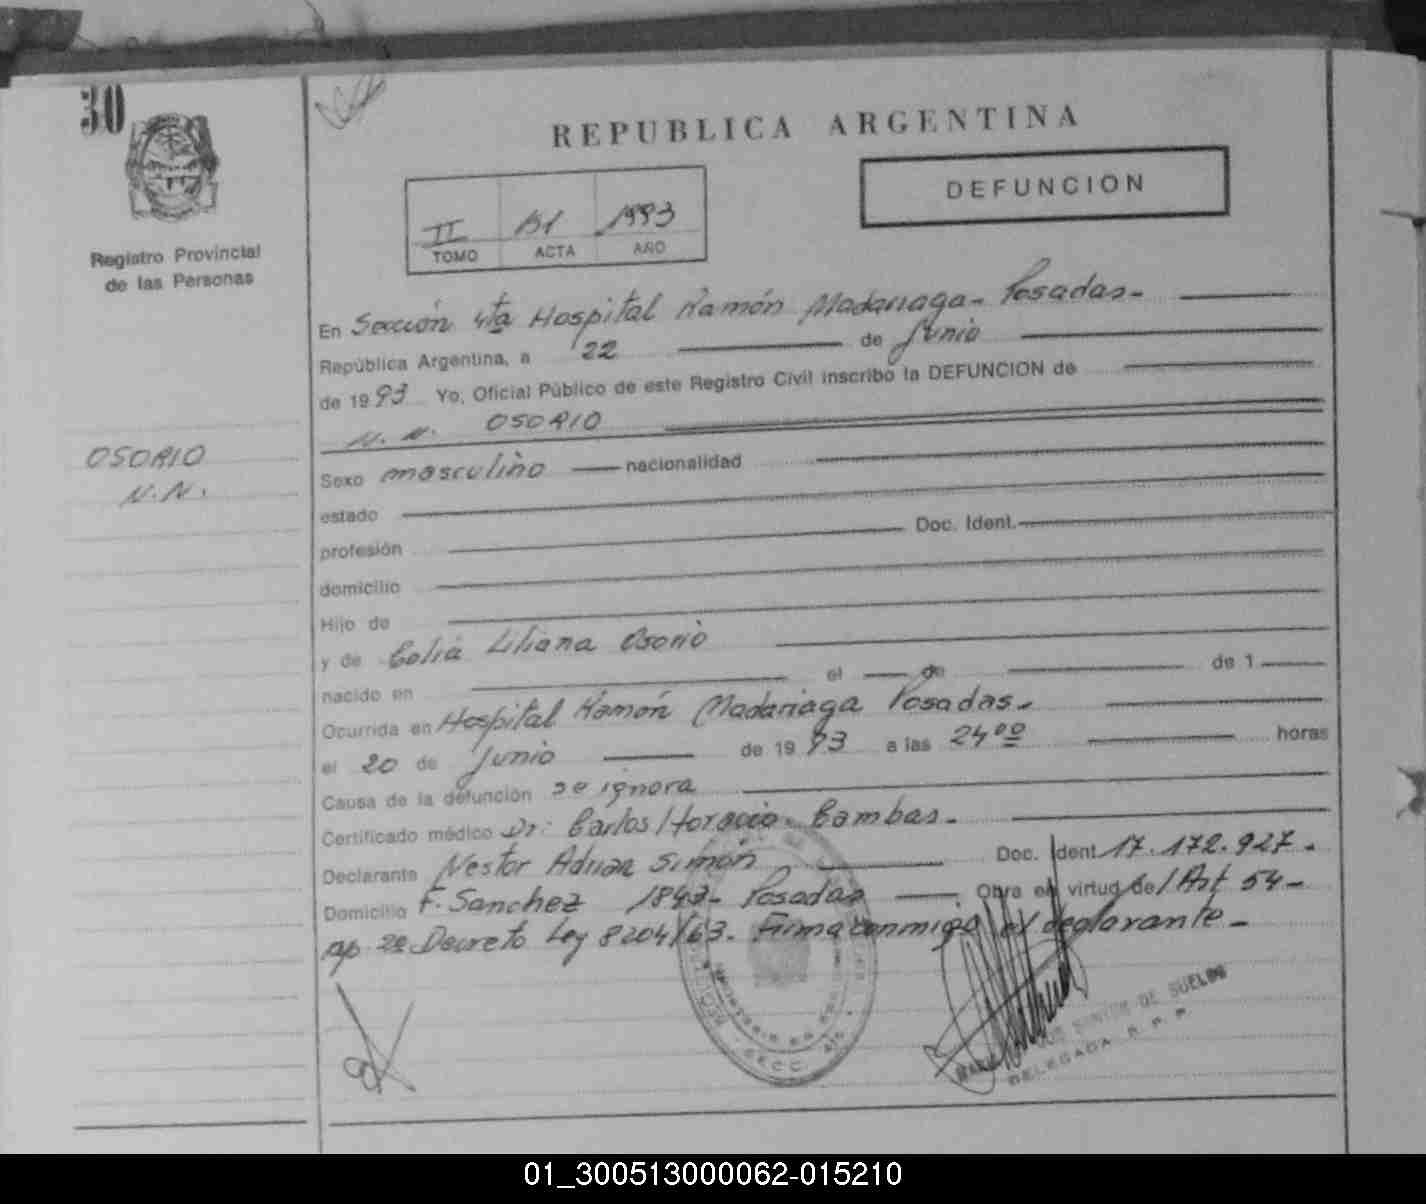 30
REPUBLICA ARGENTINA
DEFUNCION
II 131 1993
TOMO ACTA AÑO
Registro Provincial
de las Personas
En Sección 4ta Hospital Ramón Madariaga - Posadas -
República Argentina, a 22 de Junio
de 1993 Yo, Oficial Público de este Registro Civil inscribo la DEFUNCION de
N. N. OSORIO
OSORIO
N. N.
Sexo masculino nacionalidad
estado
profesión Doc. Ident.
domicilio
Hijo de
y de Celia Liliana Osorio
nacido en el de de 1
Ocurrida en Hospital Ramón Madariaga Posadas -
el 20 de Junio de 1993 a las 24 00 horas
Causa de la defunción se ignora
Certificado médico Dr: Carlos Horacio Cambas -
Declarante Nestor Adrian Simón Doc. Ident 17.172.927. -
Domicilio F. Sanchez 1843 - Posadas Obra en virtud de Art 54 -
ap 2º Decreto Ley 8204/63. Firma conmigo el declarante -
DE SUELDO
DELEGADA R. P. P.
01_300513000062-015210